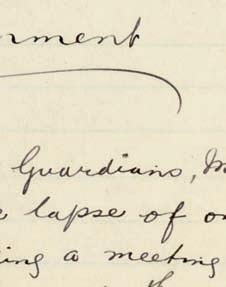 nment
Guardians, M
lapse of
ing a meeting